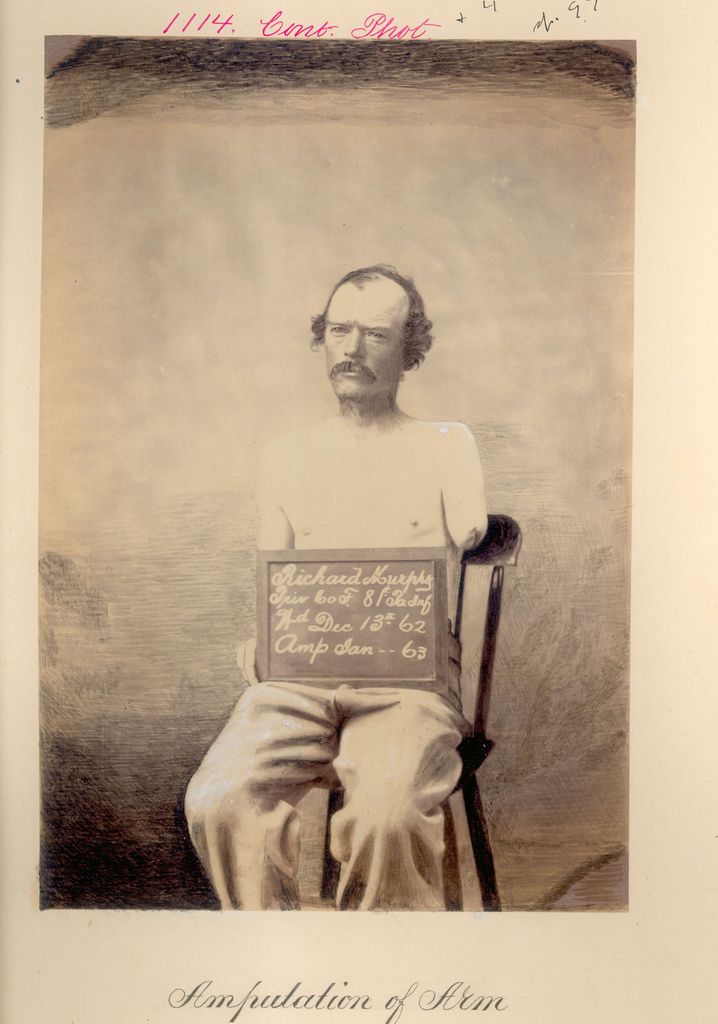 1114. Cont. Phot
Richard Murphy
Priv Co F. 81st Pa Inf
Wd Dec 13th 62
Amp Jan -- 63
Amputation of Arm